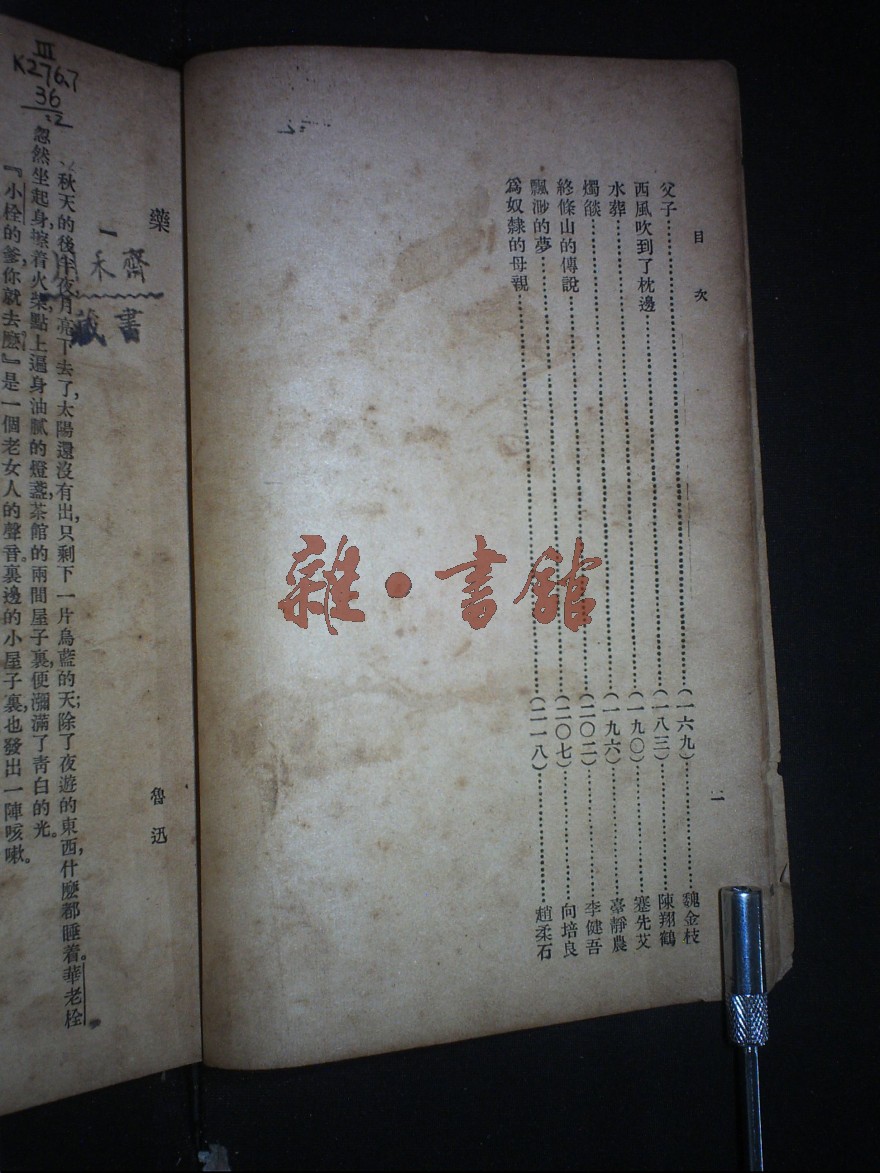 目次
二
父子……(一六九)……魏金枝
西風吹到了枕邊……(一八三)……陳翔鶴
水葬……(一九〇)……蹇先艾
燭燄……(一九六)……臺靜農
終條山的傳說……(二〇二)……李健吾
飄渺的夢……(二〇七)……向培良
爲奴隸的母親……(二一八)……趙柔石
雜·書館
藥
魯迅
一
秋天的後半夜,月亮下去了,太陽還沒有出,只剩下一片烏藍的天;除了夜遊的東西,什麽都睡着。華老栓
忽然坐起身,擦着火柴,點上遍身油膩的燈盞,茶館的兩間屋子裏,便瀰滿了青白的光。
『小栓的爹,你就去麽』是一個老女人的聲音。裏邊的小屋子裏,也發出一陣咳嗽。
III
K276.7
36
:2
齋禾
書藏